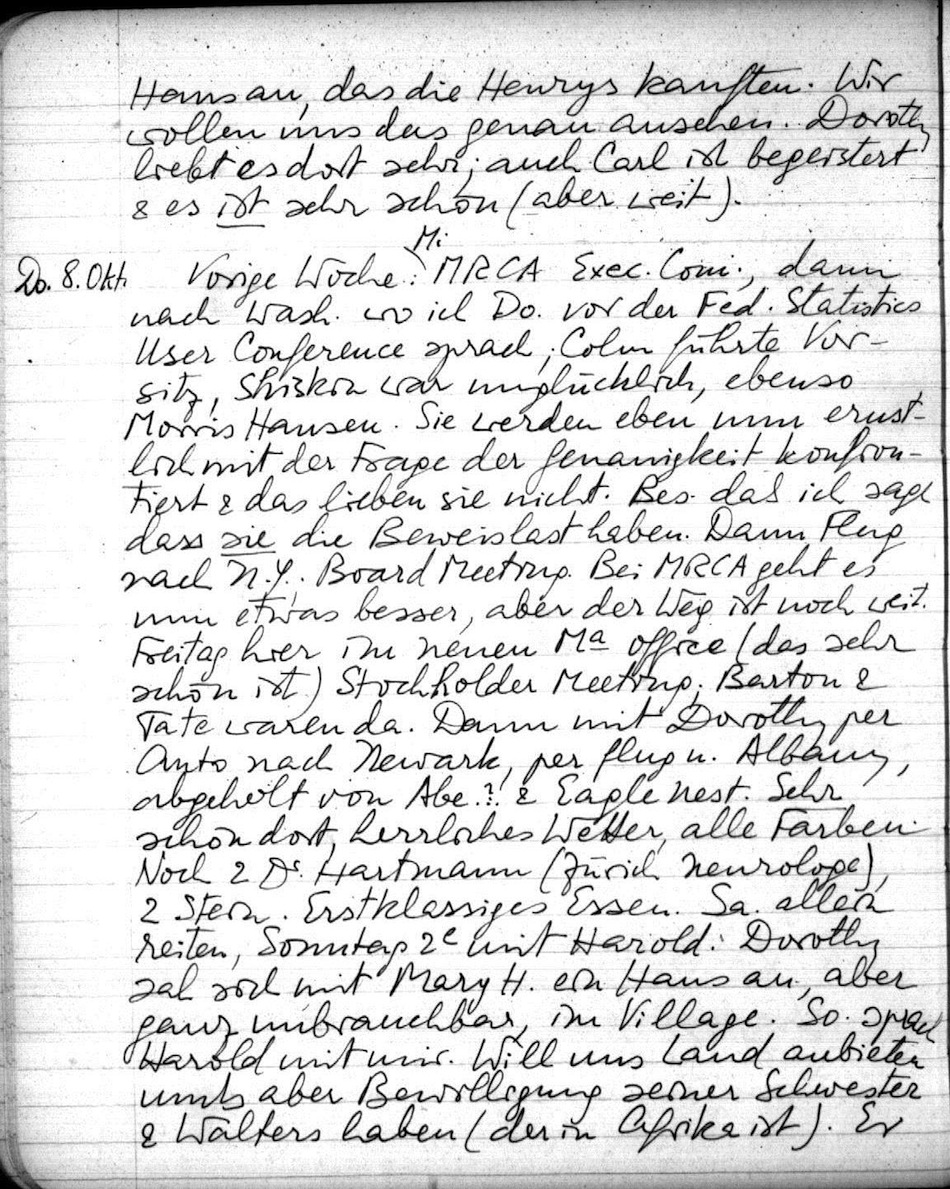 Haus an, das die Henrys kauften. Wir
wollen uns das genau ansehen. Dorothy
liebt es dort sehr; auch Carl ist begeistert
& es ist sehr schön (aber weit).
Mi
Do. 8. Okt. Vorige Woche: MRCA Exec. Com., dann
nach Wash. wo ich Do. vor der Fed. Statistics
User Conference sprach; Colm führte Vor-
sitz, Shiskin war unglücklich, ebenso
Morris Hansen. Sie werden eben nun ernst-
lich mit der Frage der Genauigkeit konfron-
tiert & das lieben sie nicht. Bes. daß ich sage
dass sie die Beweislast haben. Dann Flug
nach N.Y. Board Meeting. Bei MRCA geht es
nun etwas besser, aber der Weg ist noch weit.
Freitag hier im neuen Ma office (das sehr
schön ist) Stockholder Meeting; Barton &
Tate waren da. Dann mit Dorothy per
Auto nach Newark, per Flug n. Albany,
abgeholt von Abe..?. & Eagle Nest. Sehr
schön dort, herrliches Wetter, alle Farben.
Noch 2 Dr. Hartmann (Zürich Neurologe),
2 Stern. Erstklassiges Essen. Sa. allein
reiten, Sonntag 2e mit Harold. Dorothy
sah sich mit Mary H. ein Haus an, aber
ganz unbrauchbar, im Village. So. sprach
Harold mit mir. Will uns Land anbieten
muß aber Bewilligung seiner Schwester
& Walters haben (der in Afrika ist). Er